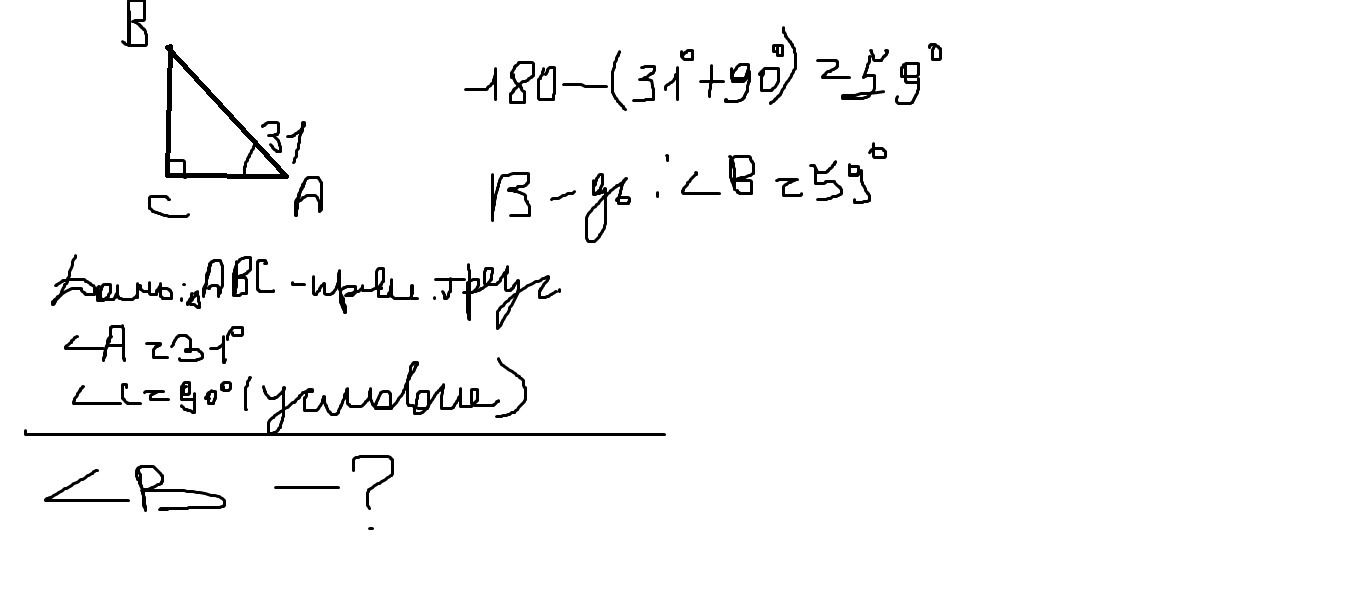 B
31
C
A
180-(31°+90°)=59°
В - дь: ∠B=59°
Дано: △ABC - прям. треуг
∠A=31°
∠C=90° (условие)
∠B - ?